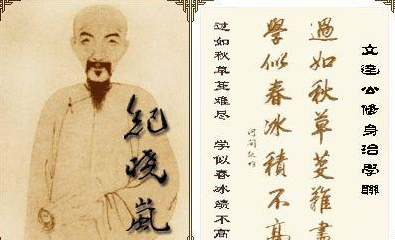 紀晓嵐
文達公修身治學聯
過如秋草芟難盡
學似春冰積不高
河间纪昀
过如秋草芟难尽 学似春冰绩不高